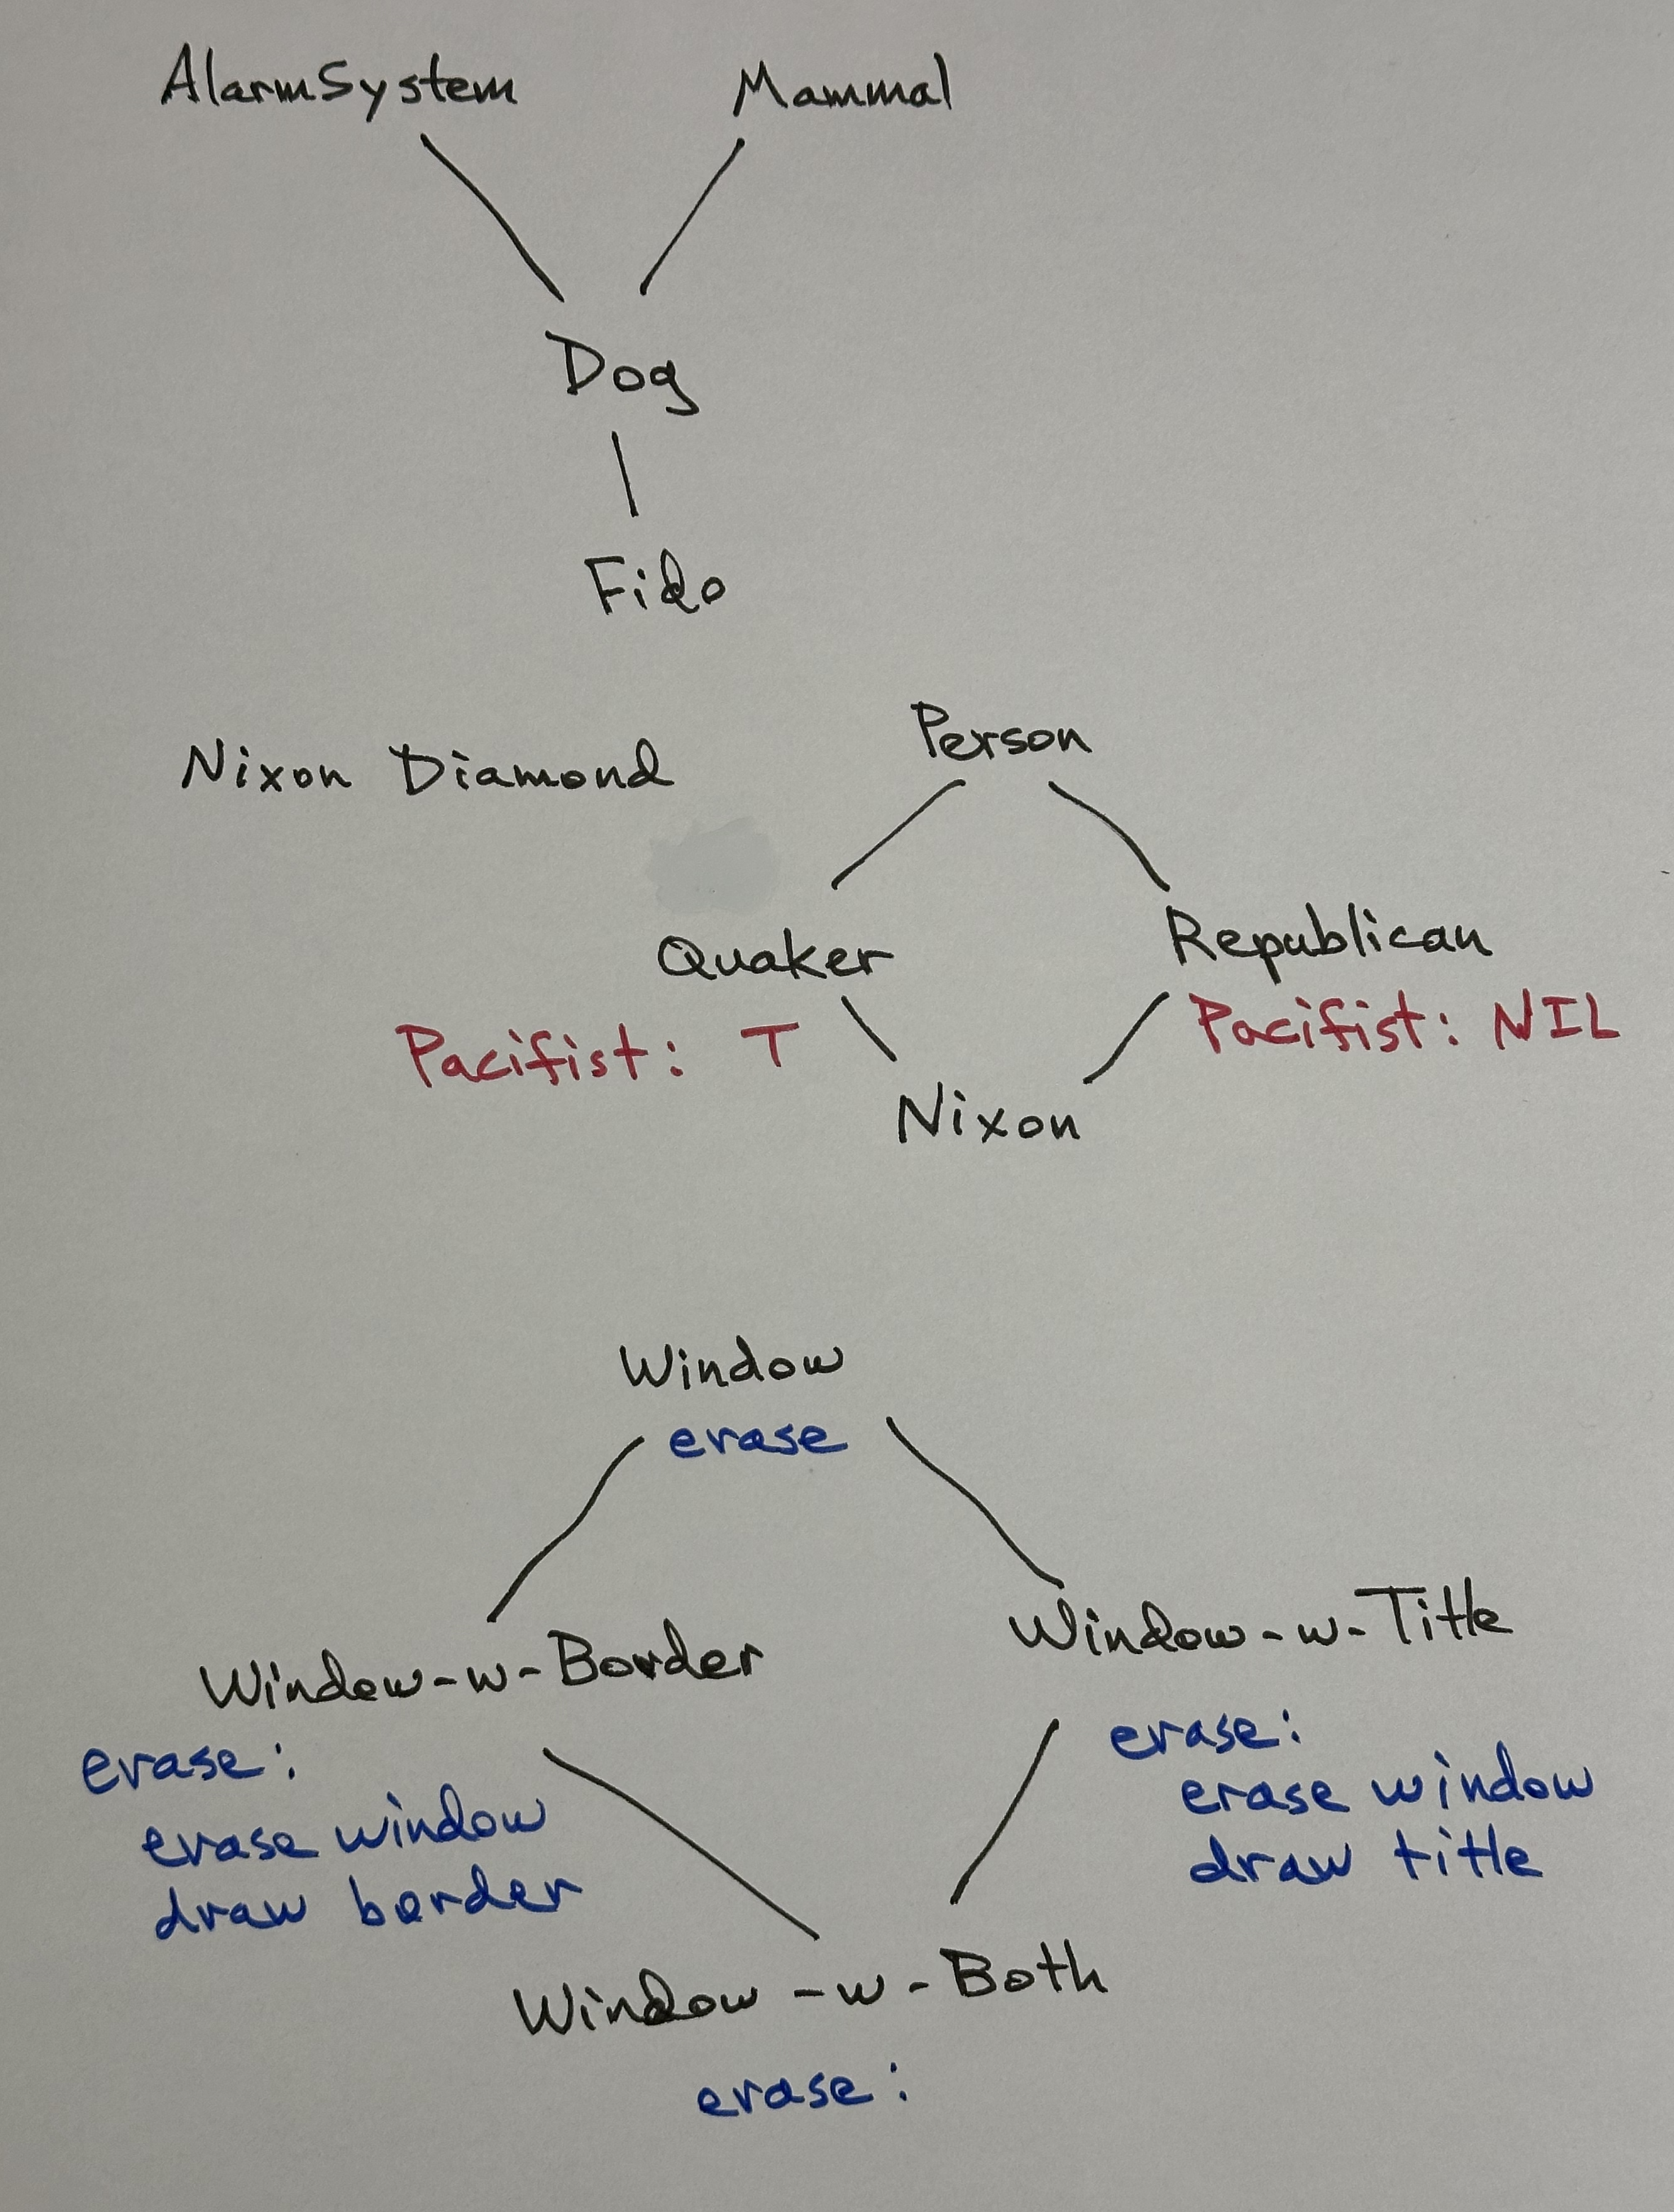 AlarmSystem Mammal
Dog
Fido
Nixon Diamond
Person
Quaker Republican
Pacifist: T Pacifist: NIL
Nixon
Window
erase
Window-w-Border Window-w-Title
erase:
erase window
draw border
erase:
erase window
draw title
Window-w-Both
erase: